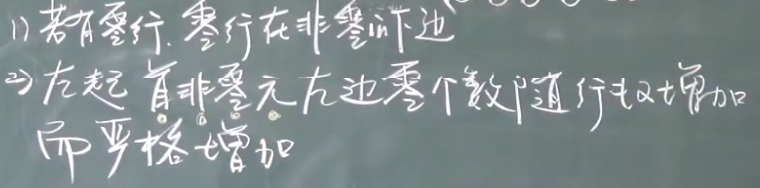 1) 若有零行,零行在非零行下边
2) 左起首非零元左边零个数随行数增加
而严格增加